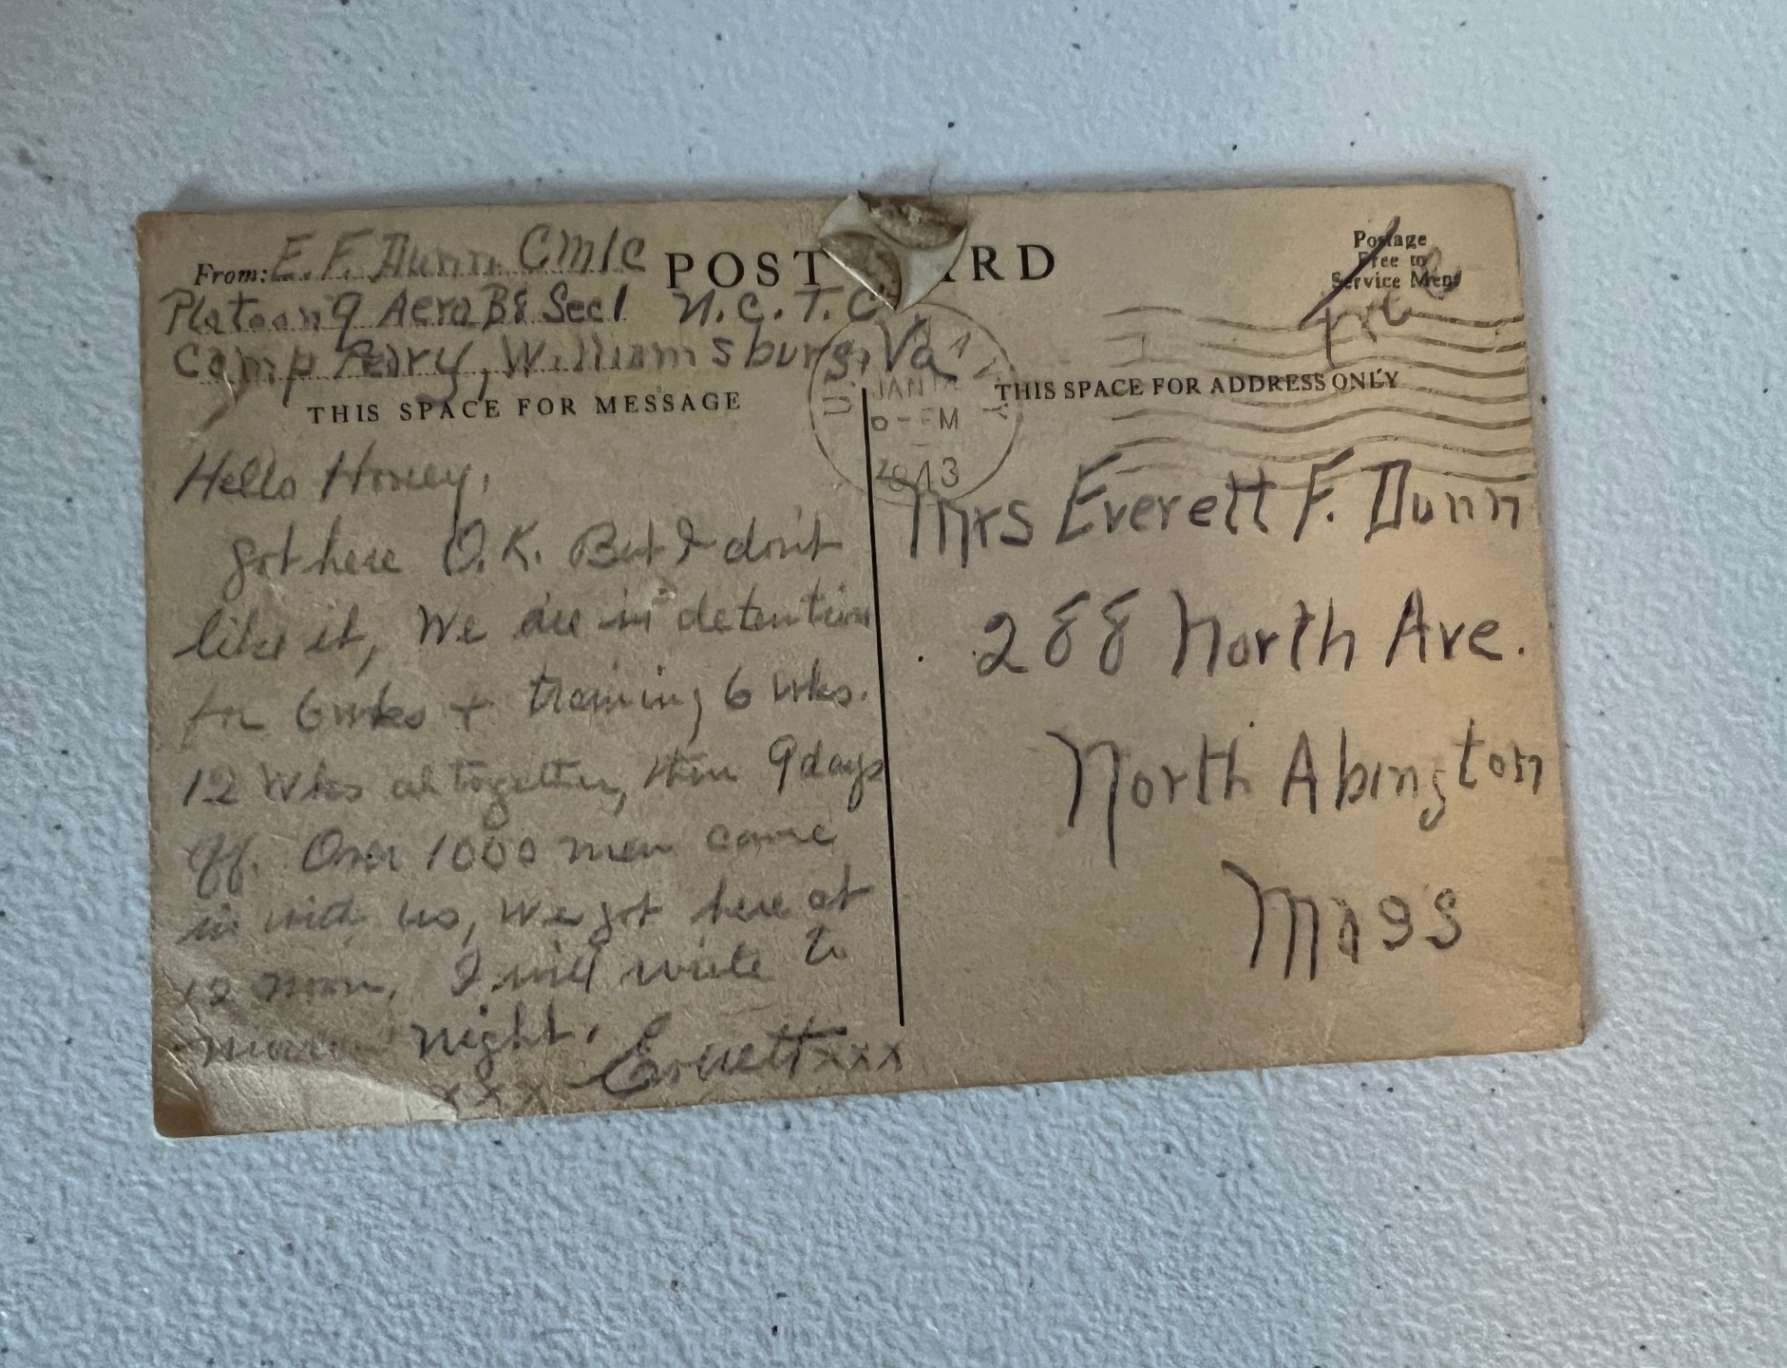 From: E. F. Dunn. CM1C
POST ARD
Postage
Free to
Service Men
Free
Platoon 9 Aera B8 Sec1 N.C.T.C.
Camp Peary, Williamsburg, Va
THIS SPACE FOR MESSAGE
U.S. NAVY
JAN
6-PM
1943
THIS SPACE FOR ADDRESS ONLY
Hello Honey,
got here O.K. But I don't
like it, We are in detention
for 6 wks + training 6 wks.
12 Wks altogether, then 9 days
off. Over 1000 men came
in with us, We got here at
12 noon, I will write to
morrow night.
Everett xxx
xxx
Mrs Everett F. Dunn
288 North Ave.
North Abington
Mass